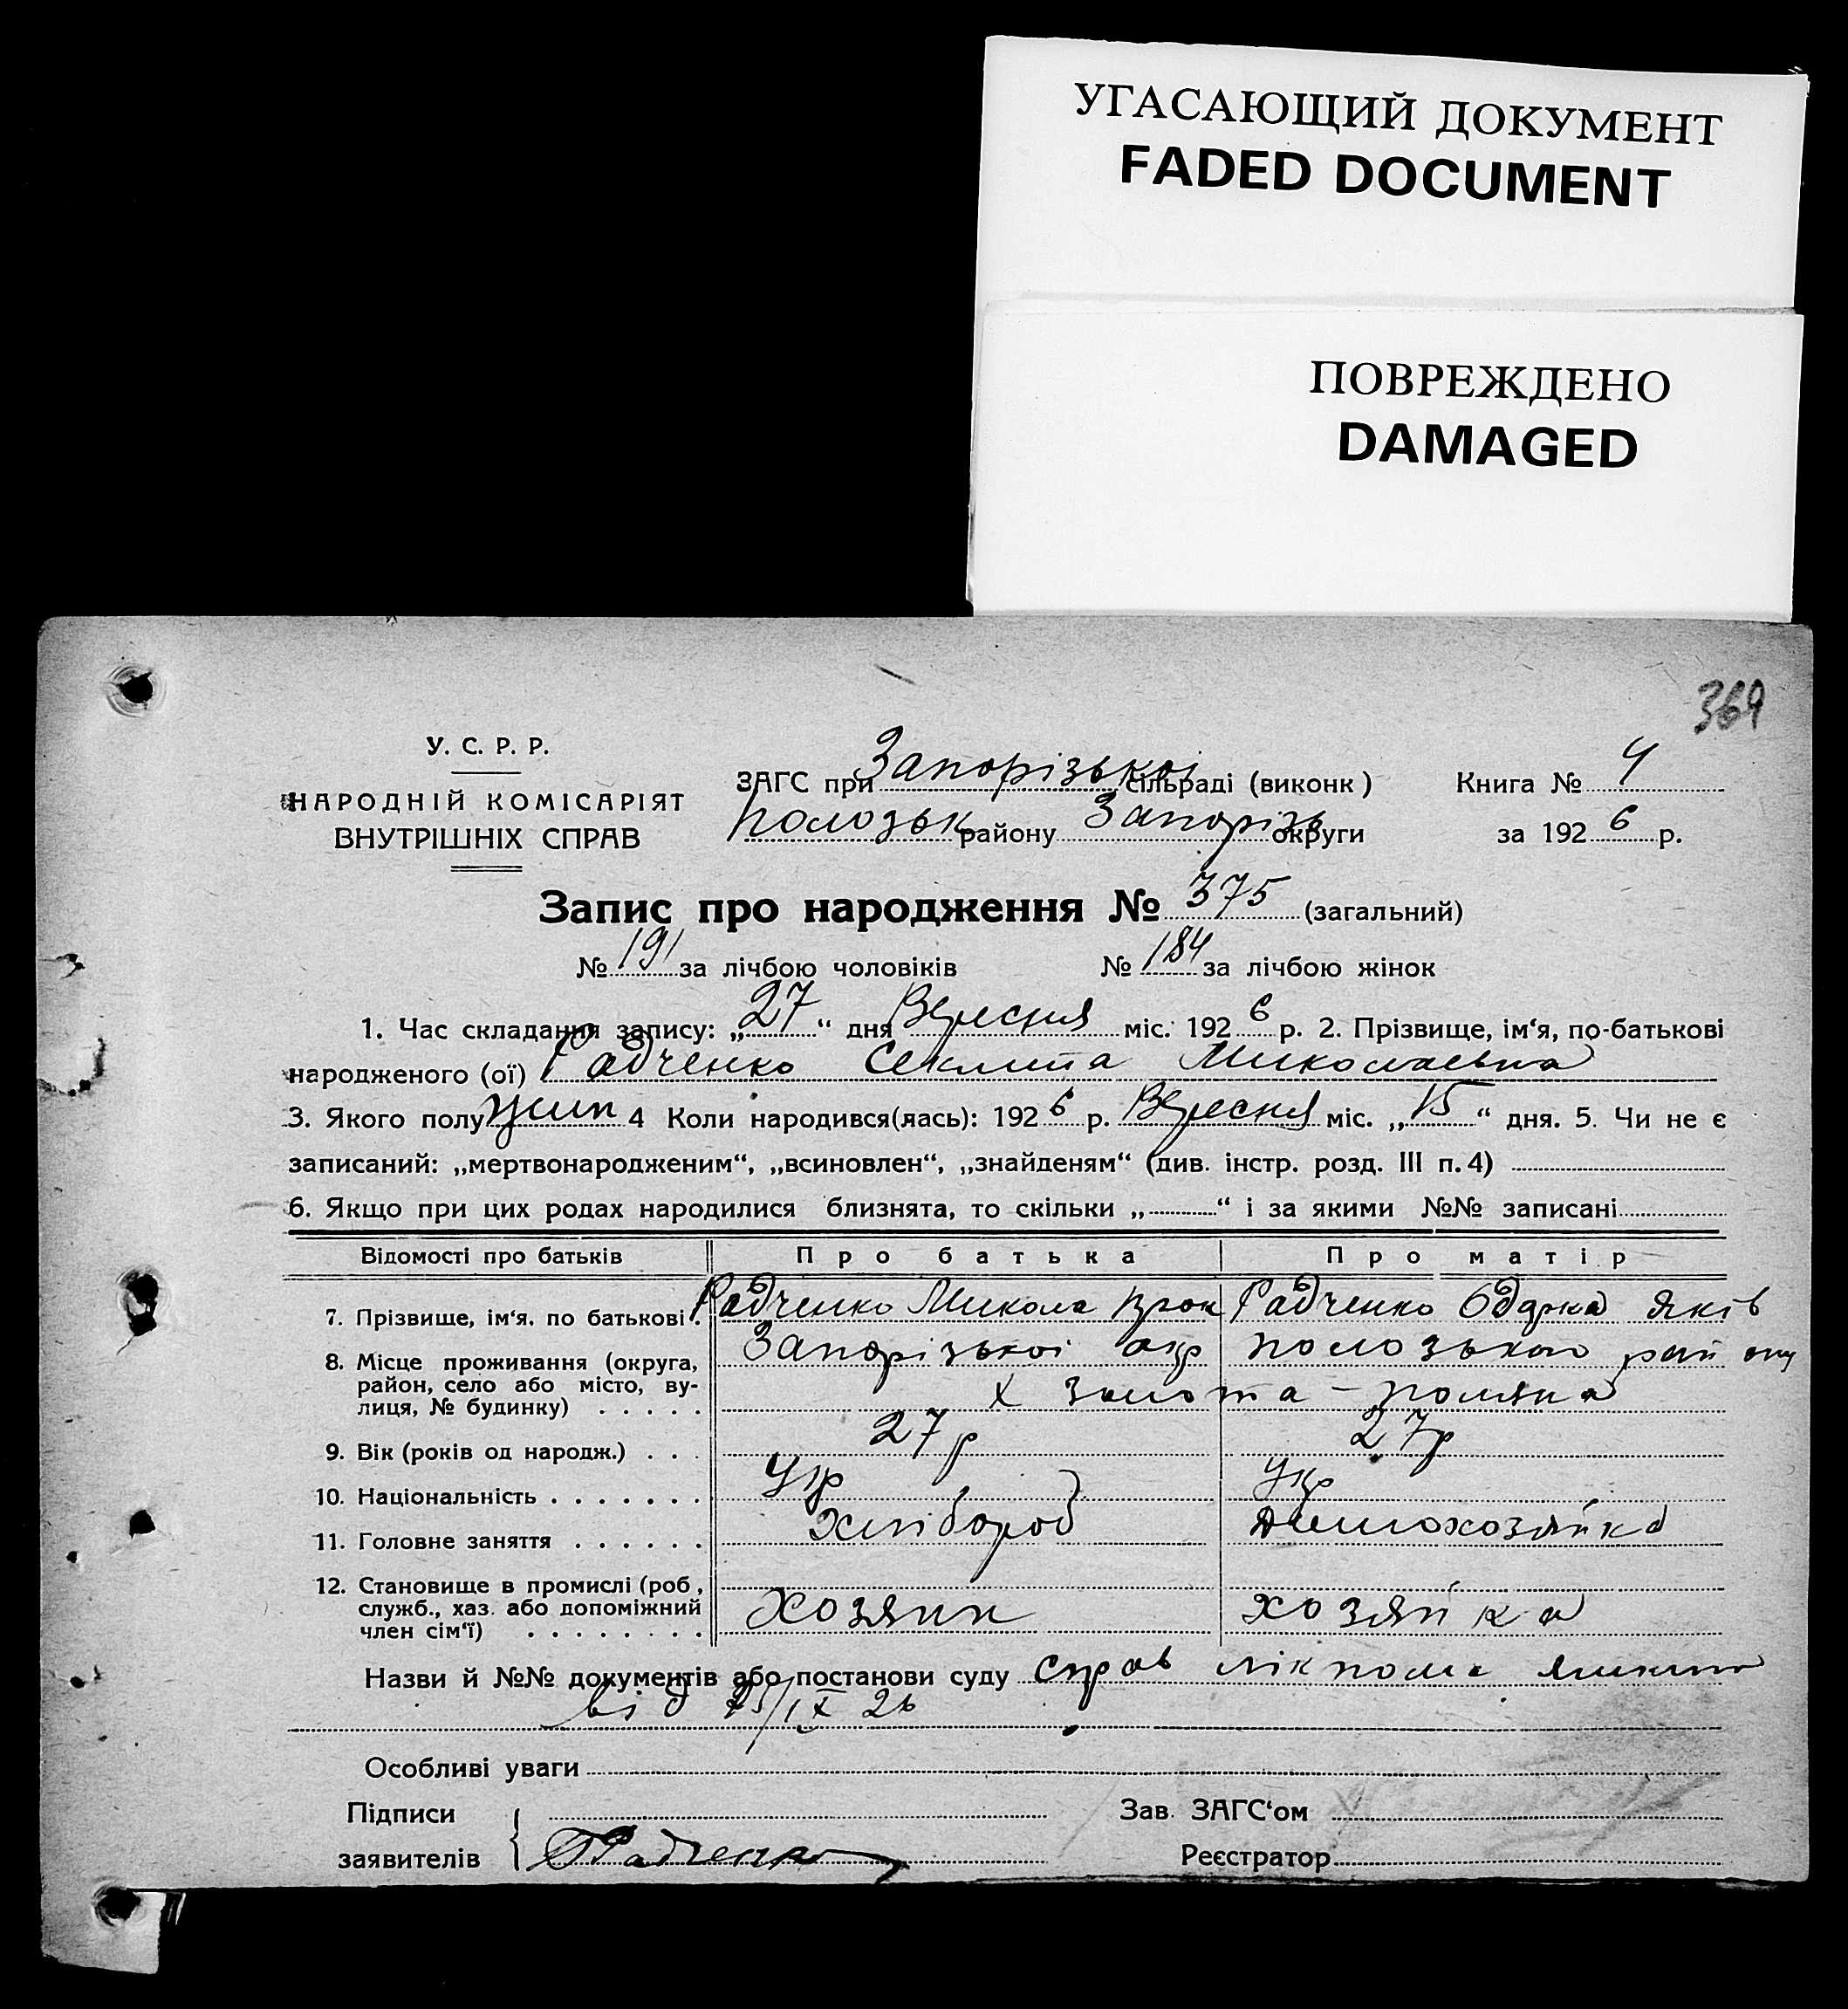 УГАСАЮЩИЙ ДОКУМЕНТ
FADED DOCUMENT
ПОВРЕЖДЕНО
DAMAGED
369
У. С. Р. Р.
НАРОДНІЙ КОМІСАРІЯТ
ВНУТРІШНІХ СПРАВ
ЗАГС при Запорізької сільраді (виконк) Книга № 4
Полозьк району Запорізь округи за 1926 р.
Запис про народження № 375 (загальний)
№ 191 за лічбою чоловіків № 184 за лічбою жінок
1. Час складання запису: „27“ дня Вересня міс. 1926 р. 2. Прізвище, ім‘я, по-батькові
народженого (ої) Радченко Секлита Миколаевна
3. Якого полу жин 4 Коли народився(лась): 1926 р. Вересня міс. „15“ дня. 5. Чи не є
записаний: „мертвонародженим“, „всиновлен“, „знайденям“ (див. інстр. розд. III п. 4)
6. Якщо при цих родах народилися близнята, то скільки „ “ і за якими №№ записані
Відомості про батьків Про батька Про матір
7. Прізвище, ім‘я. по батькові. Радченко Микола Радченко Одарка Яків
8. Місце проживання (округа, Запорізької окр полозького району
район, село або місто, ву-
лиця, № будинку) х Золота - поляна
9. Вік (років од народж.) 27 р 27 р
10. Національність Укр Укр
11. Головне заняття Хлібороб домохозяйка
12. Становище в промислі (роб,
служб., хаз. або допоміжний хозяин хозяйка
член сім‘ї)
Назви й №№ документів або постанови суду Справ лікпома
від 25/IX 26
Особливі уваги
Підписи Зав. ЗАГС‘ом
заявителів Радченко Реєстратор